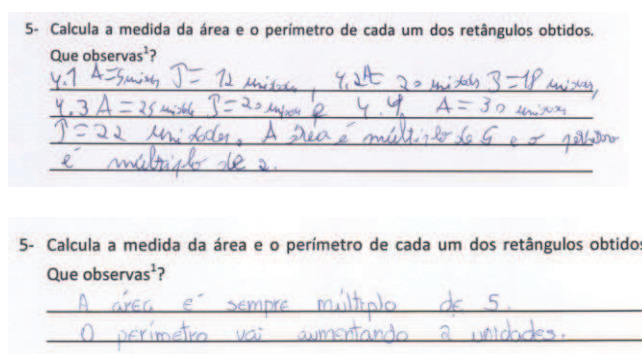 5- Calcula a medida da área e o perímetro de cada um dos retângulos obtidos.
Que observas¹?
4.1 A=5 unidades P= 12 unidades, 4.2 A= 20 unidades P=18 unidades,
4.3 A=25 unidades P=20 unidades e 4.4. A=30 unidades
P=22 unidades. A área é múltiplo de 5 e o perímetro
é múltiplo de 2.
5- Calcula a medida da área e o perímetro de cada um dos retângulos obtidos
Que observas¹?
A área é sempre múltiplo de 5.
O perímetro vai aumentando 2 unidades.